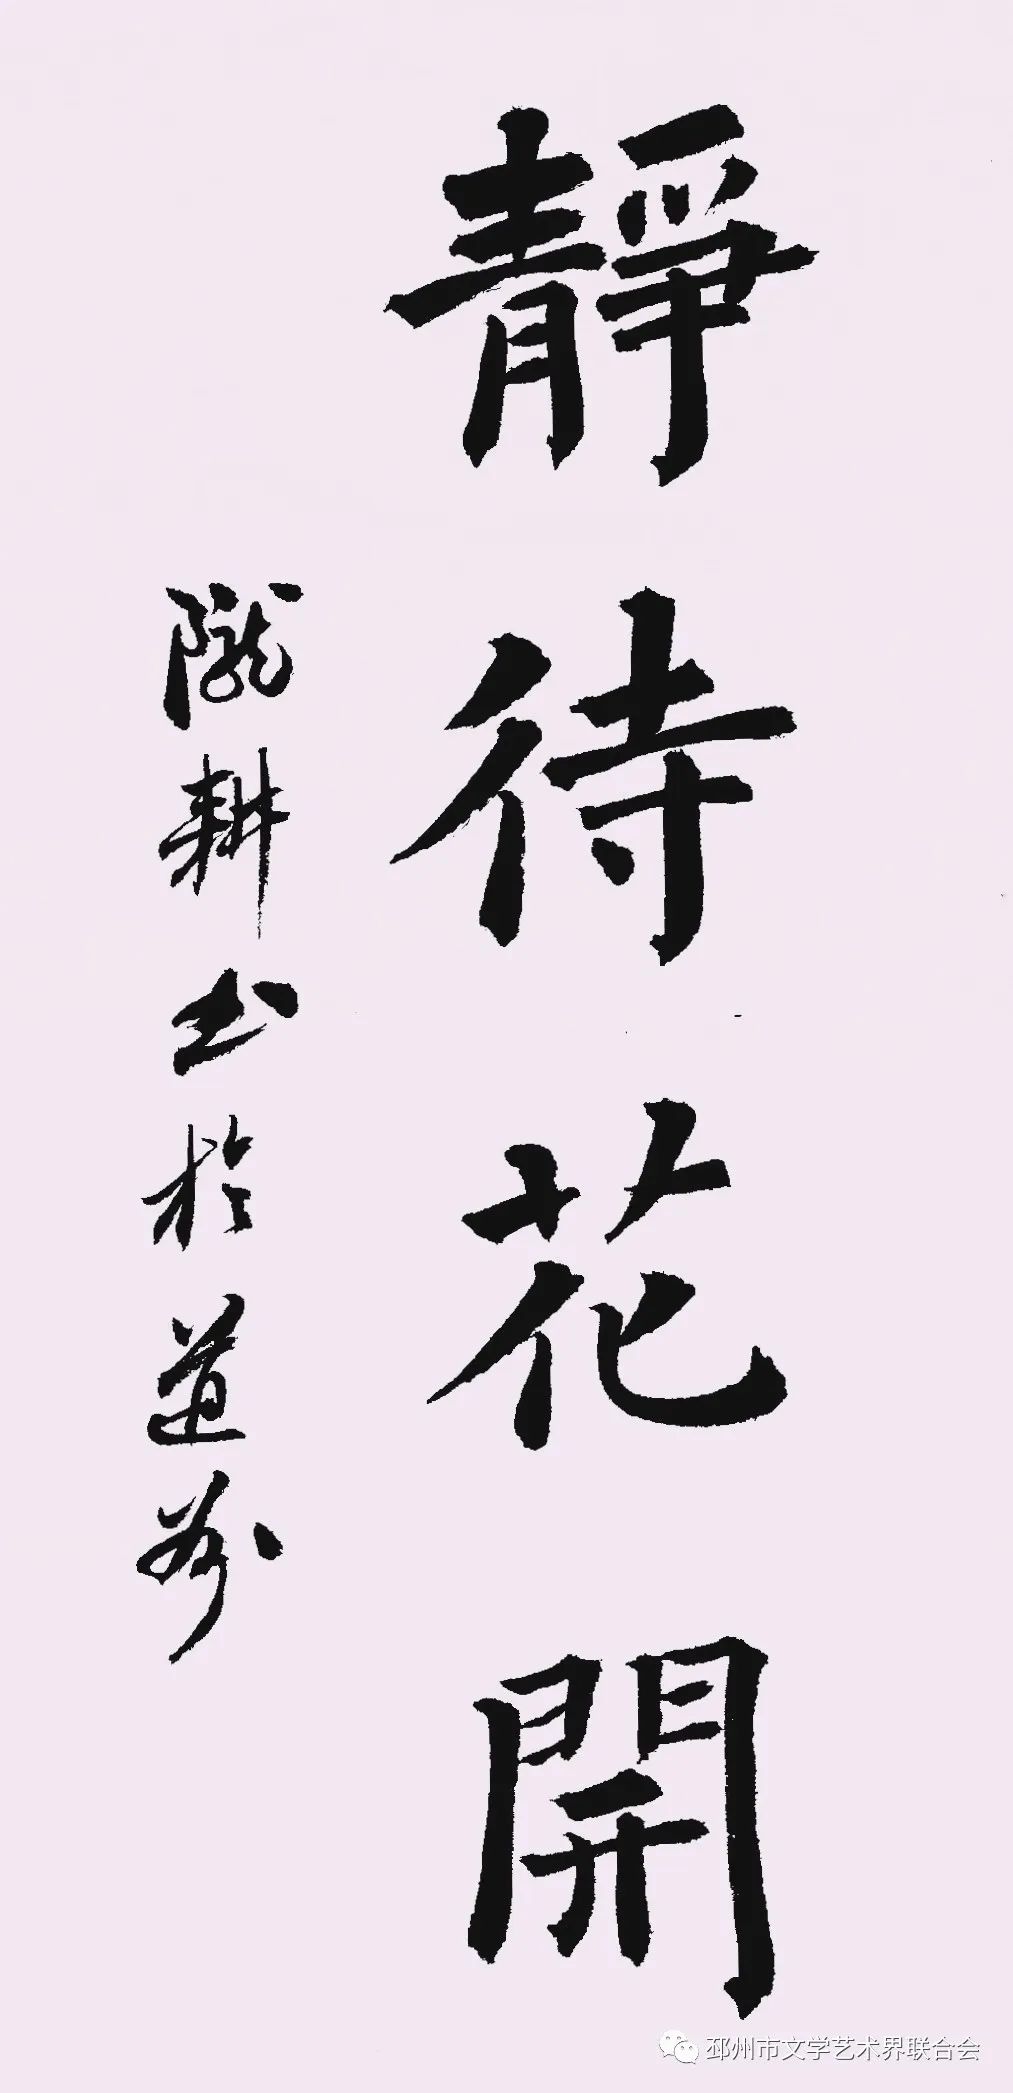 靜待花開
隴耕书於道州
邳州市文学艺术界联合会